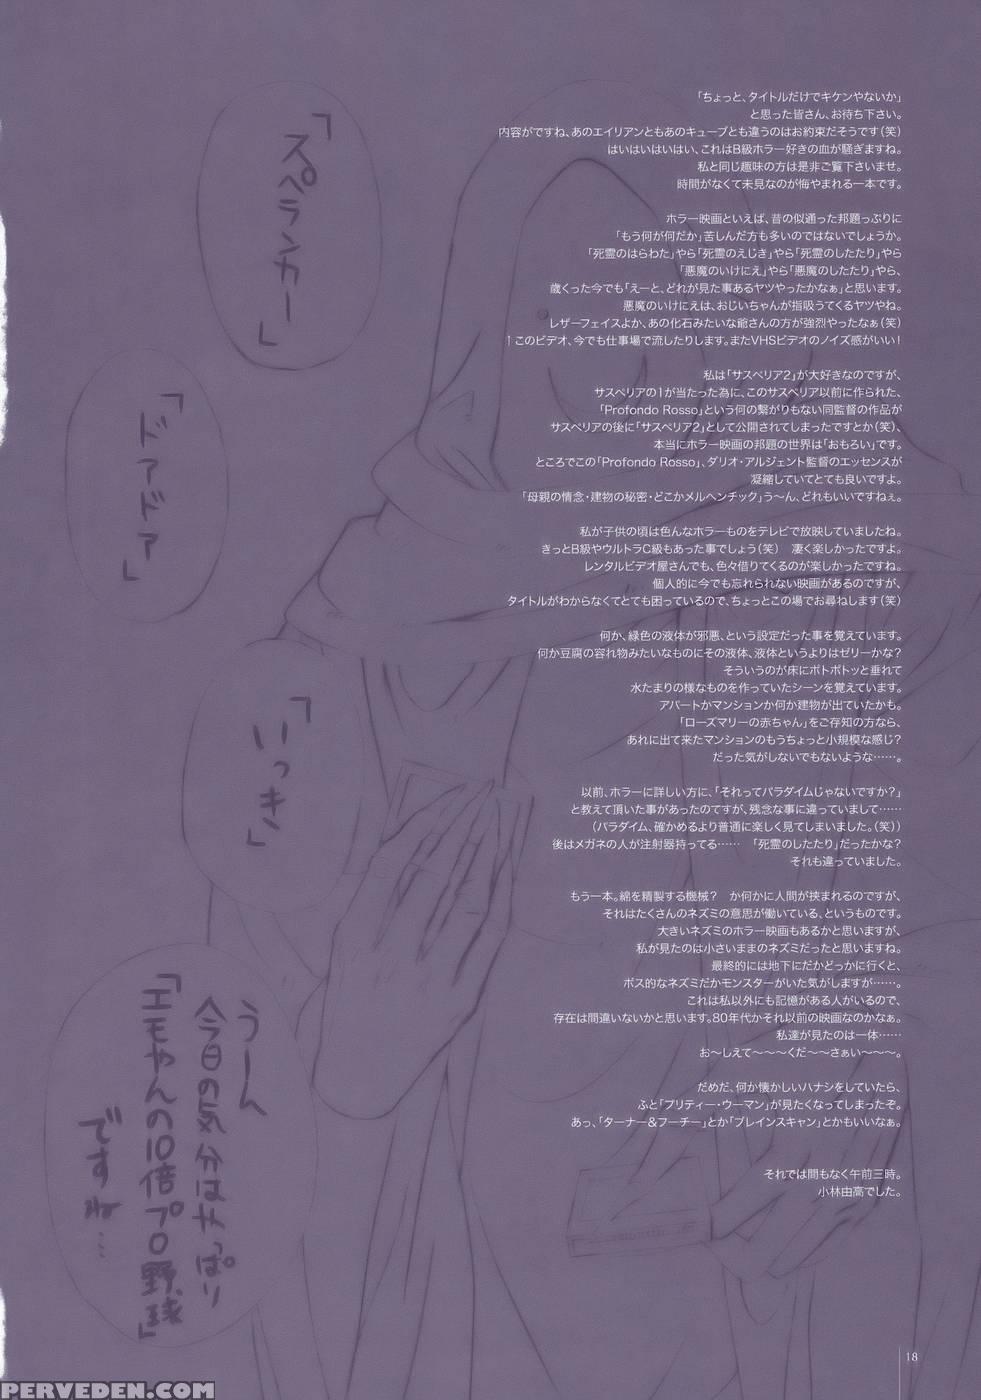 「ちょっと、タイトルだけでキケンやないか」
と思った皆さん、お待ち下さい。
内容がですね、あのエイリアンともあのキューブとも違うのはお約束だそうです(笑)
はいはいはいはい、これはB級ホラー好きの血が騒ぎますね。
私と同じ趣味の方は是非ご覧下さいませ。
時間がなくて未見なのが悔やまれる一本です。
ホラー映画といえば、昔の似通った邦題っぷりに
「もう何が何だか」苦しんだ方も多いのではないでしょうか。
「死霊のはらわた」やら「死霊のえじき」やら「死霊のしたたり」やら
「悪魔のいけにえ」やら「悪魔のしたたり」やら、
歳くった今でも「えーと、どれが見た事あるヤツやったかなぁ」と思います。
悪魔のいけにえは、おじいちゃんが指吸うてくるヤツやね。
レザーフェイスよか、あの化石みたいな爺さんの方が強烈やったなぁ(笑)
↑このビデオ、今でも仕事場で流したりします。またVHSビデオのノイズ感がいい!
私は「サスペリア2」が大好きなのですが、
サスペリアの1が当たった為に、このサスペリア以前に作られた、
「Profondo Rosso」という何の繋がりもない同監督の作品が
サスペリアの後に「サスペリア2」として公開されてしまったですとか(笑)、
本当にホラー映画の邦題の世界は「おもろい」です。
ところでこの「Profondo Rosso」、ダリオ・アルジェント監督のエッセンスが
凝縮していてとても良いですよ。
「母親の情念・建物の秘密・どこかメルヘンチック」う〜ん、どれもいいですねぇ。
私が子供の頃は色んなホラーものをテレビで放映していましたね。
きっとB級やウルトラC級もあった事でしょう(笑) 凄く楽しかったですよ。
レンタルビデオ屋さんでも、色々借りてくるのが楽しかったですね。
個人的に今でも忘れられない映画があるのですが、
タイトルがわからなくてとても困っているので、ちょっとこの場でお尋ねします(笑)
何か、緑色の液体が邪悪、という設定だった事を覚えています。
何か豆腐の容れ物みたいなものにその液体、液体というよりはゼリーかな?
そういうのが床にボトボトッと垂れて
水たまりの様なものを作っていたシーンを覚えています。
アパートかマンションか何か建物が出ていたかも。
「ローズマリーの赤ちゃん」をご存知の方なら、
あれに出て来たマンションのもうちょっと小規模な感じ?
だった気がしないでもないような……。
以前、ホラーに詳しい方に、「それってパラダイムじゃないですか?」
と教えて頂いた事があったのですが、残念な事に違っていまして……
(パラダイム、確かめるより普通に楽しく見てしまいました。(笑))
後はメガネの人が注射器持ってる…… 「死霊のしたたり」だったかな?
それも違っていました。
もう一本。綿を精製する機械? か何かに人間が挟まれるのですが、
それはたくさんのネズミの意思が働いている、というものです。
大きいネズミのホラー映画もあるかと思いますが、
私が見たのは小さいままのネズミだったと思いますね。
最終的には地下にだかどっかに行くと、
ボス的なネズミだかモンスターがいた気がしますが……。
これは私以外にも記憶がある人がいるので、
存在は間違いないかと思います。80年代かそれ以前の映画なのかなぁ。
私達が見たのは一体……
お〜しえて〜〜〜くだ〜〜さぁい〜〜〜。
だめだ、何か懐かしいハナシをしていたら、
ふと「プリティー・ウーマン」が見たくなってしまったぞ。
あっ、「ターナー&フーチー」とか「ブレインスキャン」とかもいいなぁ。
それでは間もなく午前三時。
小林由高でした。
「スペランカー」
「ドアドア」
「いっき」
うーん
今日の気分はやっぱり
「エモやんの10倍プロ野球」
ですね…
18
PERVEDEN.COM